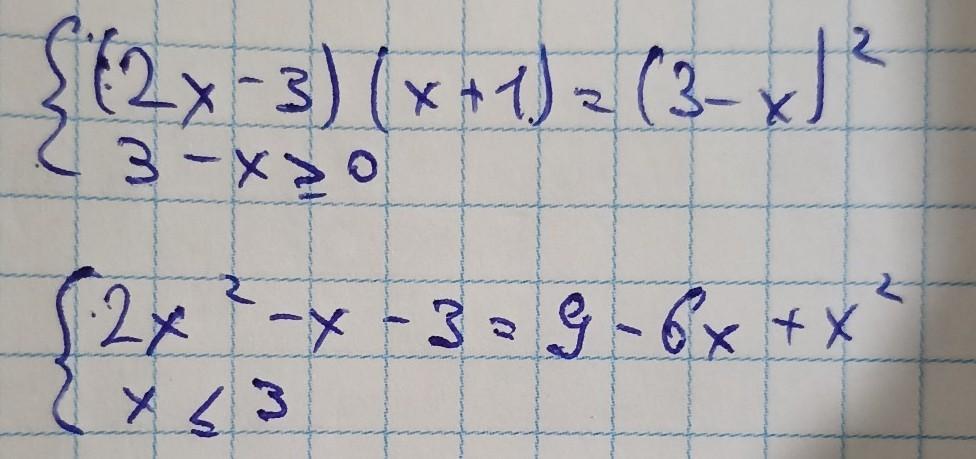 { (2x - 3)(x + 1) = (3 - x)²
3 - x ≥ 0
{ 2x² - x - 3 = 9 - 6x + x²
x ≤ 3